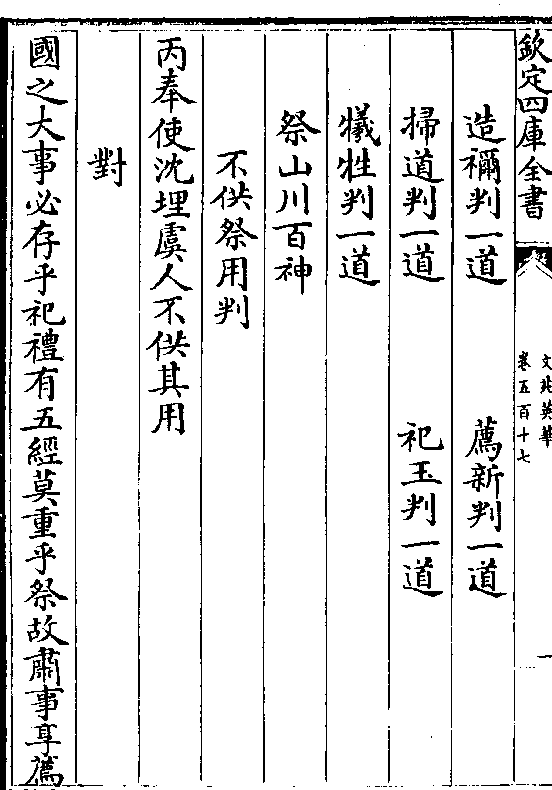 欽定四庫全書
文苑英華
卷五百十七
一
造禰判一道
薦新判一道
掃道判一道
祀玉判一道
犧牲判一道
祭山川百神
不供祭用判
丙奉使沈埋虞人不供其用
對
國之大事必存乎祀禮有五經莫重乎祭故肅事享薦